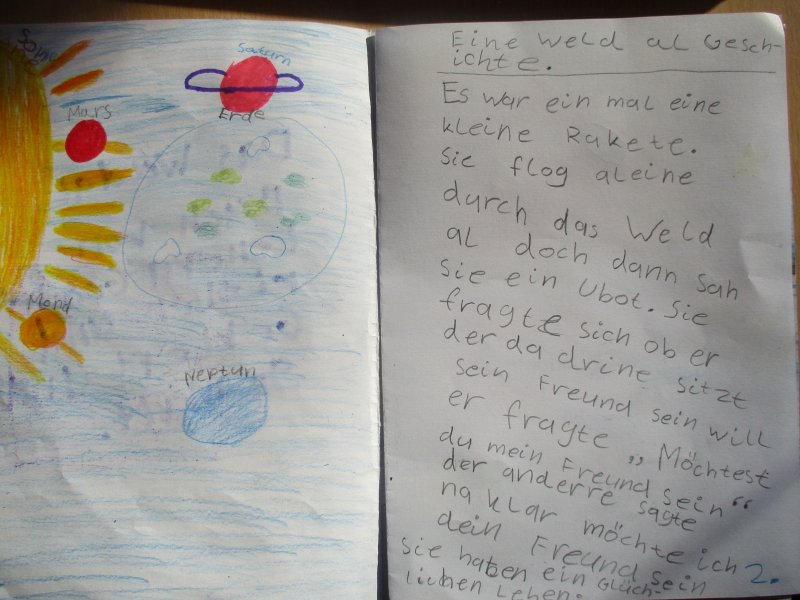 Sonne
Saturn
Mars
Erde
Mond
Neptun
Eine Weld al Gesch-
ichte.
Es war ein mal eine
kleine Rakete.
Sie flog aleine
durch das Weld
al doch dann sah
sie ein Ubot. Sie
fragte sich ob er
der da drine sitzt
sein Freund sein will
er fragte „Möchtest
du mein Freund sein“
der anderre sagte
na klar möchte ich
dein Freund sein
Sie haben ein Glück-
lichen Leben.
2.